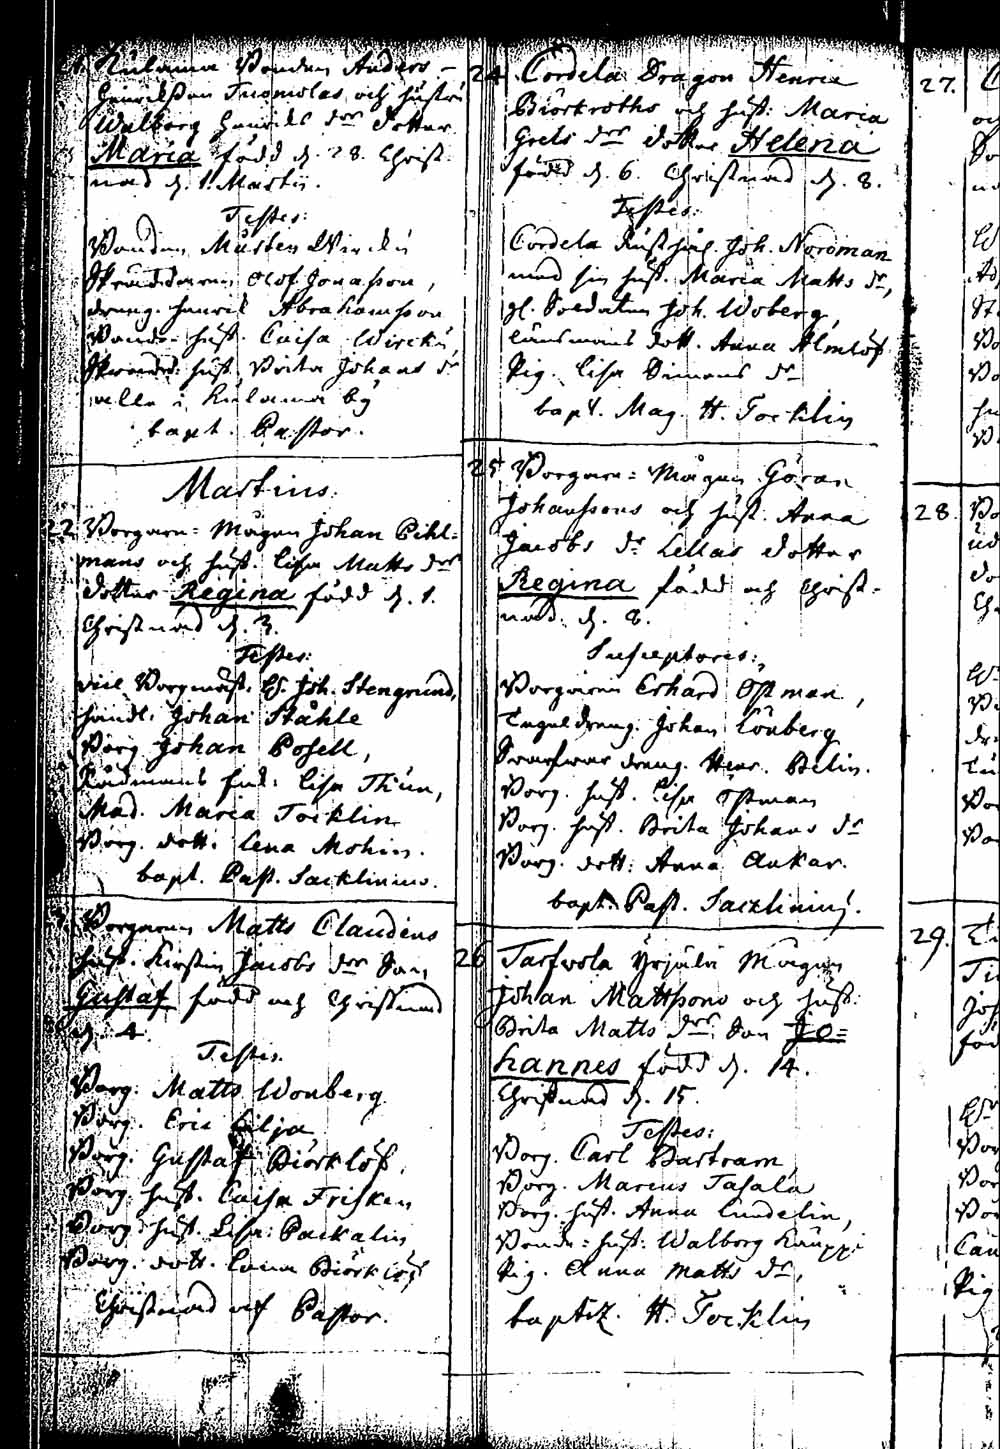 Kulama Bonden Anders
Henrickson Tuomolas och hustru
Walborg Henricks dr dotter
Maria född d. 28. Christ-
nad d. 1. Martij.
Testes:
Bonden Mårten Wircki
Skräddaren Olof Jonasson,
dreng. Henric Abrahamsson
Bonde: hust. Caisa Wircki
Skrädd: hust. Brita Johans dr
alle i Kulama by
bapt. Pastor.
Martius.
22 Borgare: Mågen Johan Pihl-
mans och hust. Lisa Matts dr
dotter Regina född d. 1.
Christnad d. 3.
Testes:
vice Borgmäst. H. Joh. Stengrund,
Handl. Johan Ståhle
Borg Johan Posell,
Rådmans hust: Lisa Thun,
Mad. Maria Tocklin
Borg. dott. Lena Mohin.
bapt. Past. Sacklinius.
Borgaren Matts Claudius
hust. Kirstin Jacobs dr Son
Gustaf född och Christnad
d. 4
Testes.
Borg: Matts Wonberg
Borg. Eric Lilja
Borg. Gustaf Biörklöf,
Borg hust. Caisa Frisken
Borg: hust. Lisa: Packalin
Borg. dott. Lena Biörklöf
Christnad af Pastor.
24 Cordela Dragon Henric
Biörkroths och hust: Maria
Grels dr dotter Helena
född d. 6. Christnad d. 8.
Testes:
Cordela Joh. Nordman
med sin hust. Maria Matts dr,
gl. Soldaten Joh. Woberg,
Länsmans dott. Anna Almlöf
Pig. Lisa Simons dr
bapt. Mag. H. Tocklin
25 Borgare: Mågen Göran
Johanssons och hust. Anna
Jacobs dr Lellas dotter
Regina född och Christ-
nad. d. 8.
Susceptores:
Borgaren Erhard Östman,
dreng. Johan Lönberg
Swarfware dreng. Henr. Belin.
Borg. hust. Lisa Östman
Borg. hust. Brita Johans dr
Borg. dott: Anna Ankar.
bapt. Past. Saczlinius.
26 Tarfwola Yrjälä Mågen
Johan Mattsons och hust:
Brita Matts dr Son Jo=
hannes född d. 14.
Christnad d. 15.
Testes:
Borg. Carl Bartram,
Borg. Marcus Tasala
Borg. hust. Anna Lundelin,
Bonde: hust: Walborg Kauppi
Pig. Anna Matts dr,
baptiz. H. Tocklin
27.
28.
29.